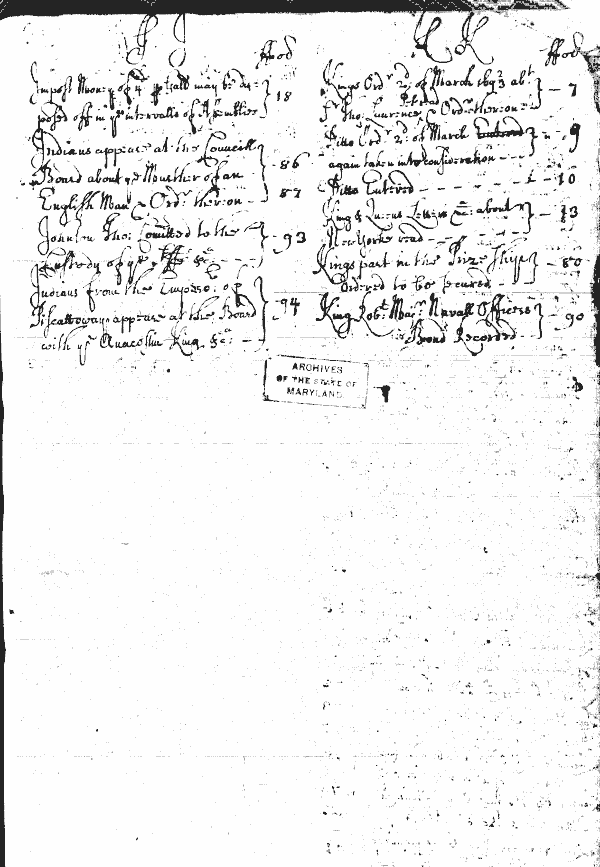 J J
ffod
Impost Money of 4 p hall may be dis=
posed off in ye intervalls of Assemblies } 18
Indians appear at the Councill
Board about ye Murther of an } 86
English Man & Ordr. thereon -- 87
Johnson Tho: Comitted to the
Custody of ye &ca. -- } 93
Indians from the Emperor of
Piscattoway appear at the Board } 94
with ye King &ca: --
K K
ffod
Kings Ordr. 2d. of March 1693 abt.
Sr. Tho: Laurence Ordr. thereon -- } - 7
Ditto Ordr. 2d. of March Entered
again taken into consideration -- } - 9
Ditto Entered - - - - - - - 10
King & Queens Letters &ca: about
New Yorke read - - - - } - 13
Kings part in the Prize Ship
Ordered to be secured - - } - 80
King Robt: Mar: Navall Officers
Bond Recorded -- } - 90
ARCHIVES
OF THE STATE OF
MARYLAND